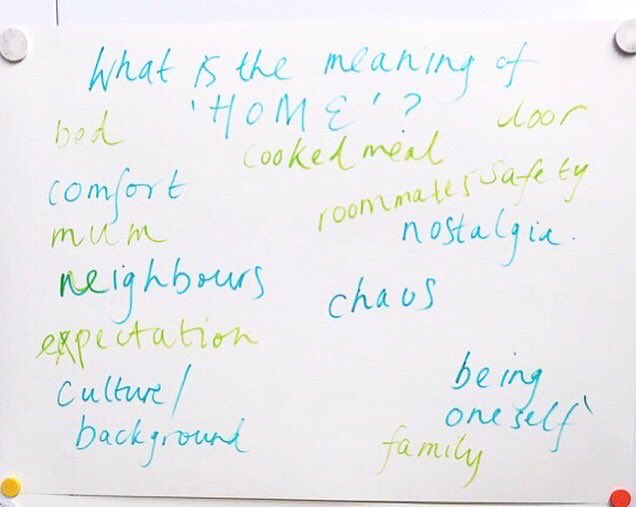 What is the meaning of
'HOME'?
bed
door
cooked meal
comfort
roommates safety
mum
nostalgia.
neighbours
chaos
expectation
culture/
background
being
oneself
family